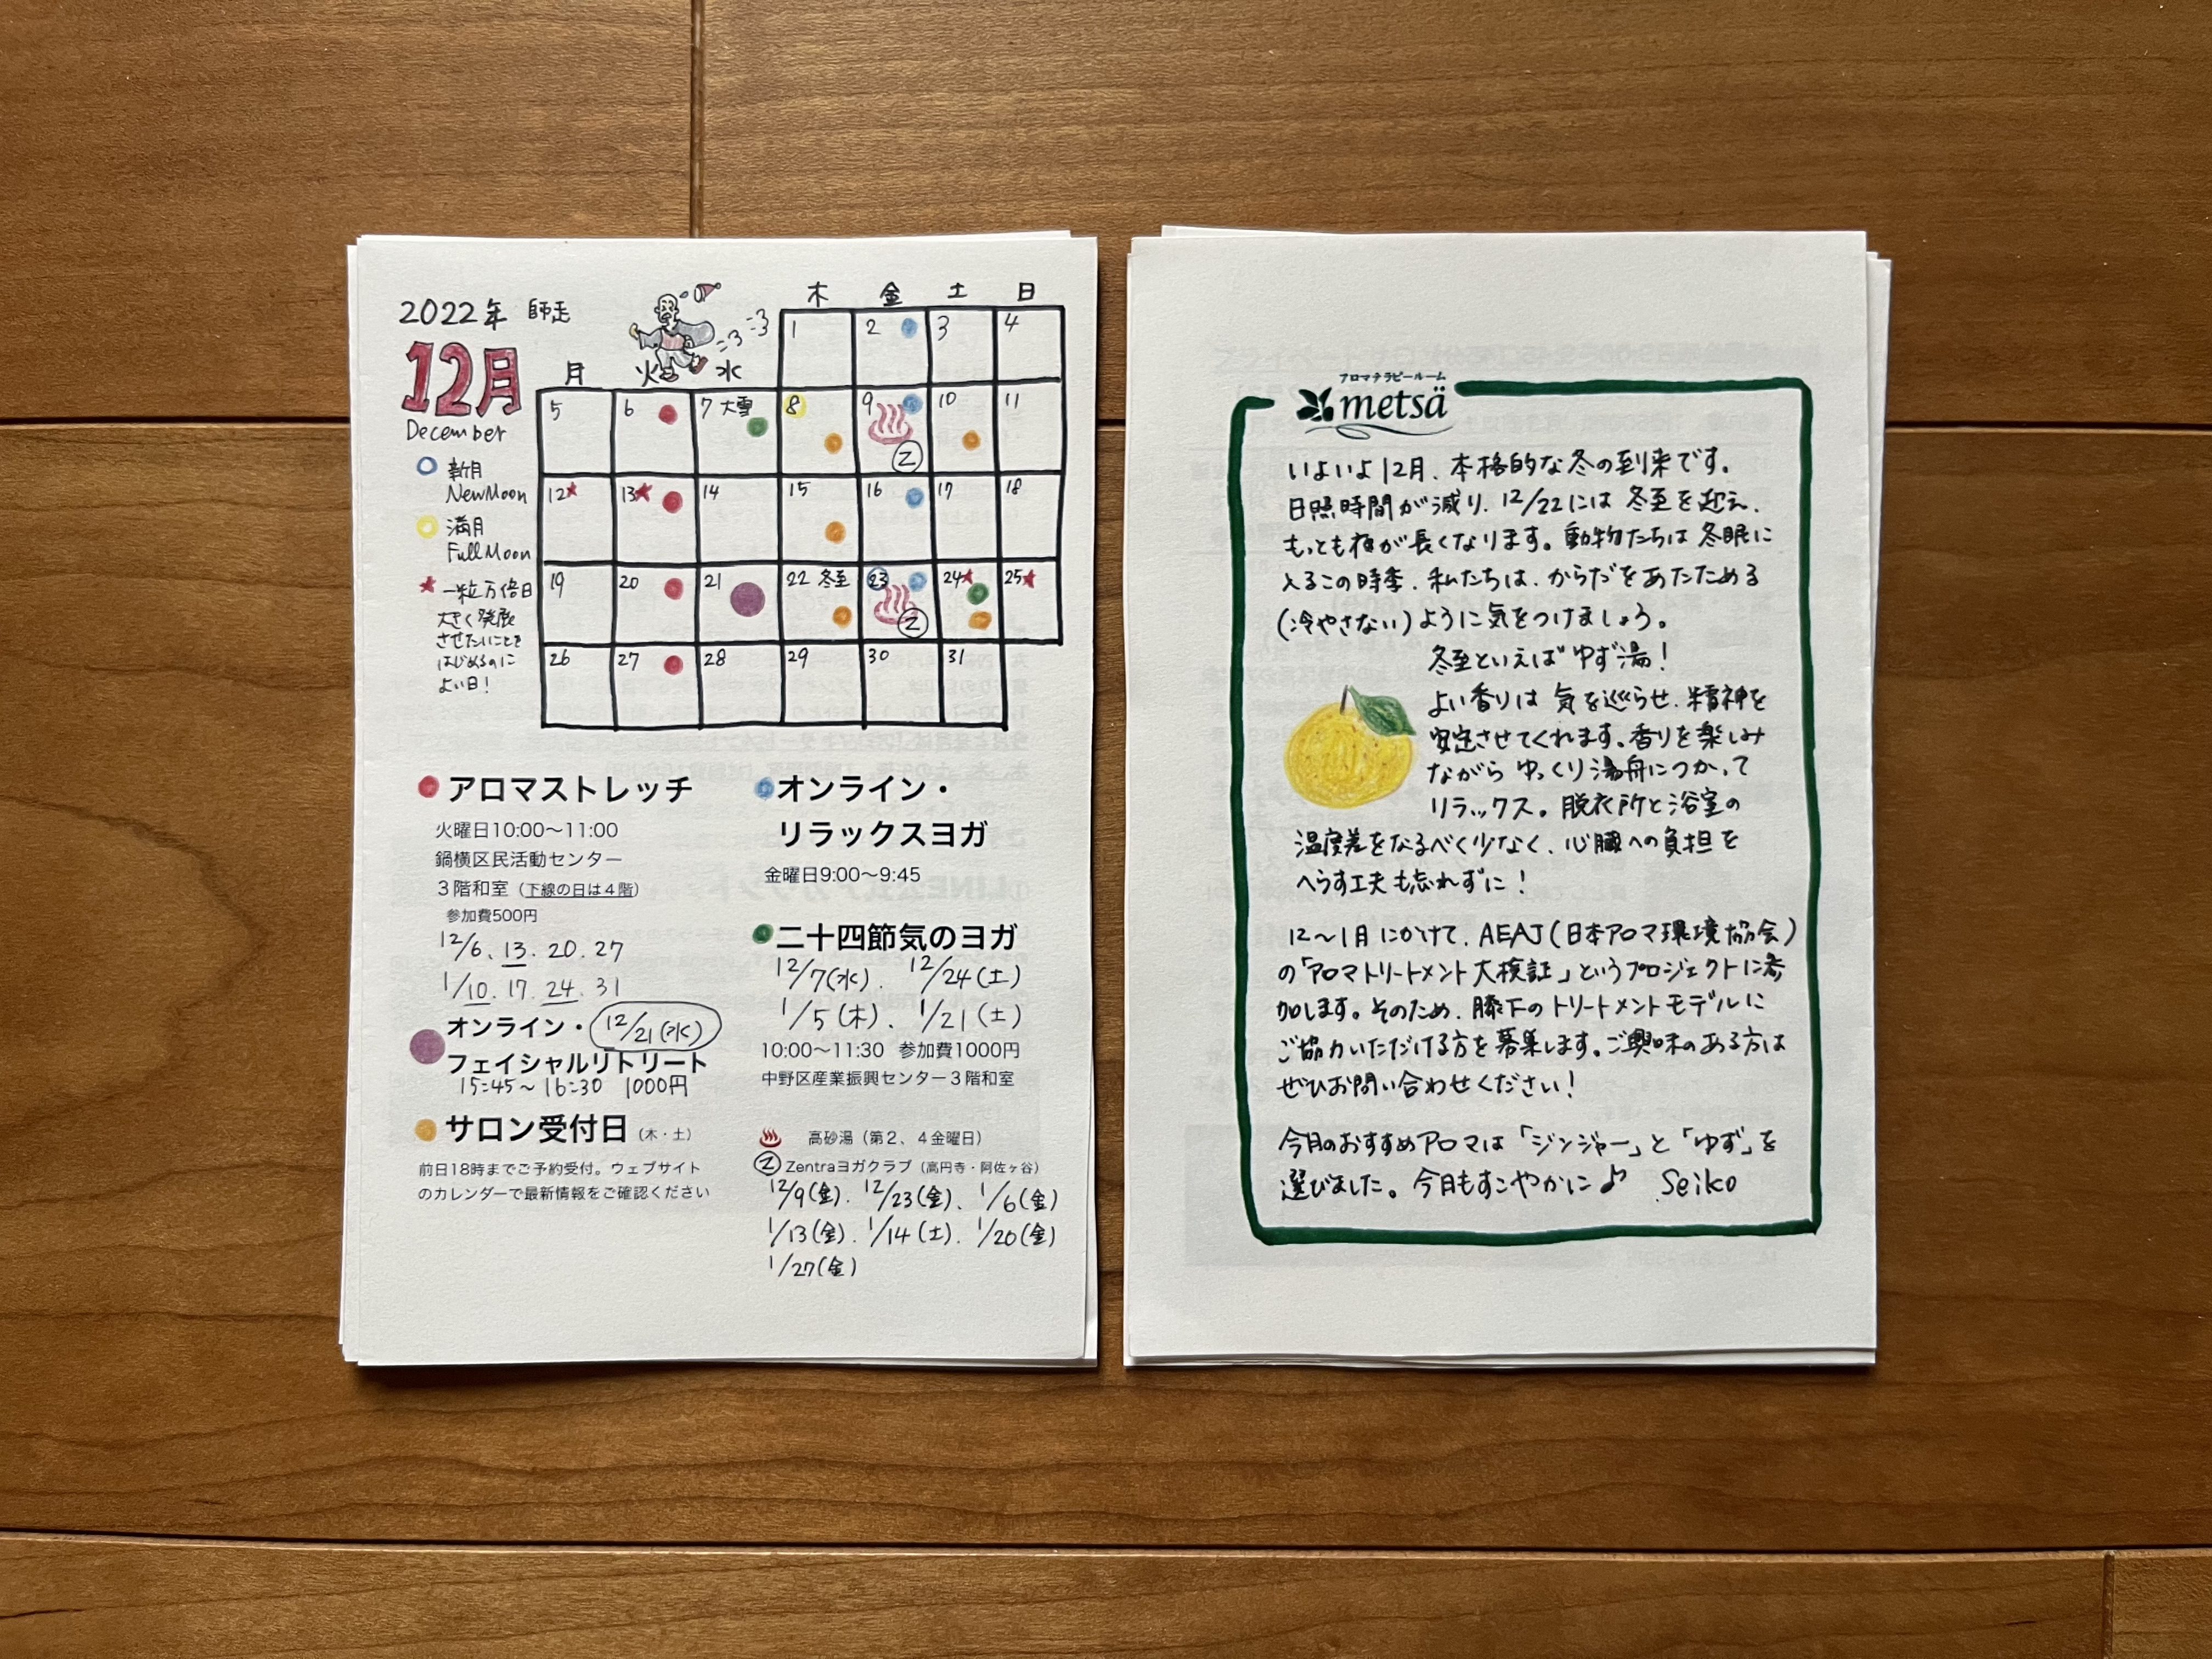 2022年 師走
12月
December
新月
New Moon
満月
Full Moon
一粒万倍日
大きく発展
させたいことを
はじめるのに
よい日!
木 金 土 日
1 2 3 4
月 火 水
5 6 7 大雪 8 9 10 11
Z
12 13 14 15 16 17 18
19 20 21 22 冬至 23 24 25
Z
26 27 28 29 30 31
アロマストレッチ
火曜日10:00〜11:00
鍋横区民活動センター
3階和室(下線の日は4階)
参加費500円
12/6、13. 20. 27
1/10. 17. 24. 31
オンライン・ 12/21(水)
フェイシャルリトリート
15:45〜16:30 1000円
サロン受付日(木・土)
前日18時までご予約受付。ウェブサイト
のカレンダーで最新情報をご確認ください
オンライン・
リラックスヨガ
金曜日9:00〜9:45
二十四節気のヨガ
12/7(水)、 12/24(土)
1/5(木)、 1/21(土)
10:00〜11:30 参加費1000円
中野区産業振興センター3階和室
高砂湯(第2、4金曜日)
Z Zentraヨガクラブ(高円寺・阿佐ヶ谷)
12/9(金)、12/23(金)、1/6(金)
1/13(金)、1/14(土)、1/20(金)
1/27(金)
アロマテラピールーム
metsä
いよいよ12月、本格的な冬の到来です。
日照時間が減り、12/22には 冬至を迎え、
もっとも夜が長くなります。動物たちは冬眠に
入るこの時季、私たちは、からだをあたためる
(冷やさない)ように気をつけましょう。
冬至といえば ゆず湯!
よい香りは 気を巡らせ、精神を
安定させてくれます。香りを楽しみ
ながら ゆっくり湯舟につかって
リラックス。脱衣所と浴室の
温度差をなるべく少なく、心臓への負担を
へらす工夫も忘れずに!
12〜1月にかけて、AEAJ(日本アロマ環境協会)
の「アロマトリートメント大検証」というプロジェクトに参
加します。そのため、膝下のトリートメントモデルに
ご協力いただける方を募集します。ご興味のある方は
ぜひお問い合わせください!
今月のおすすめアロマは「ジンジャー」と「ゆず」を
選びました。今月もすこやかに♪ Seiko